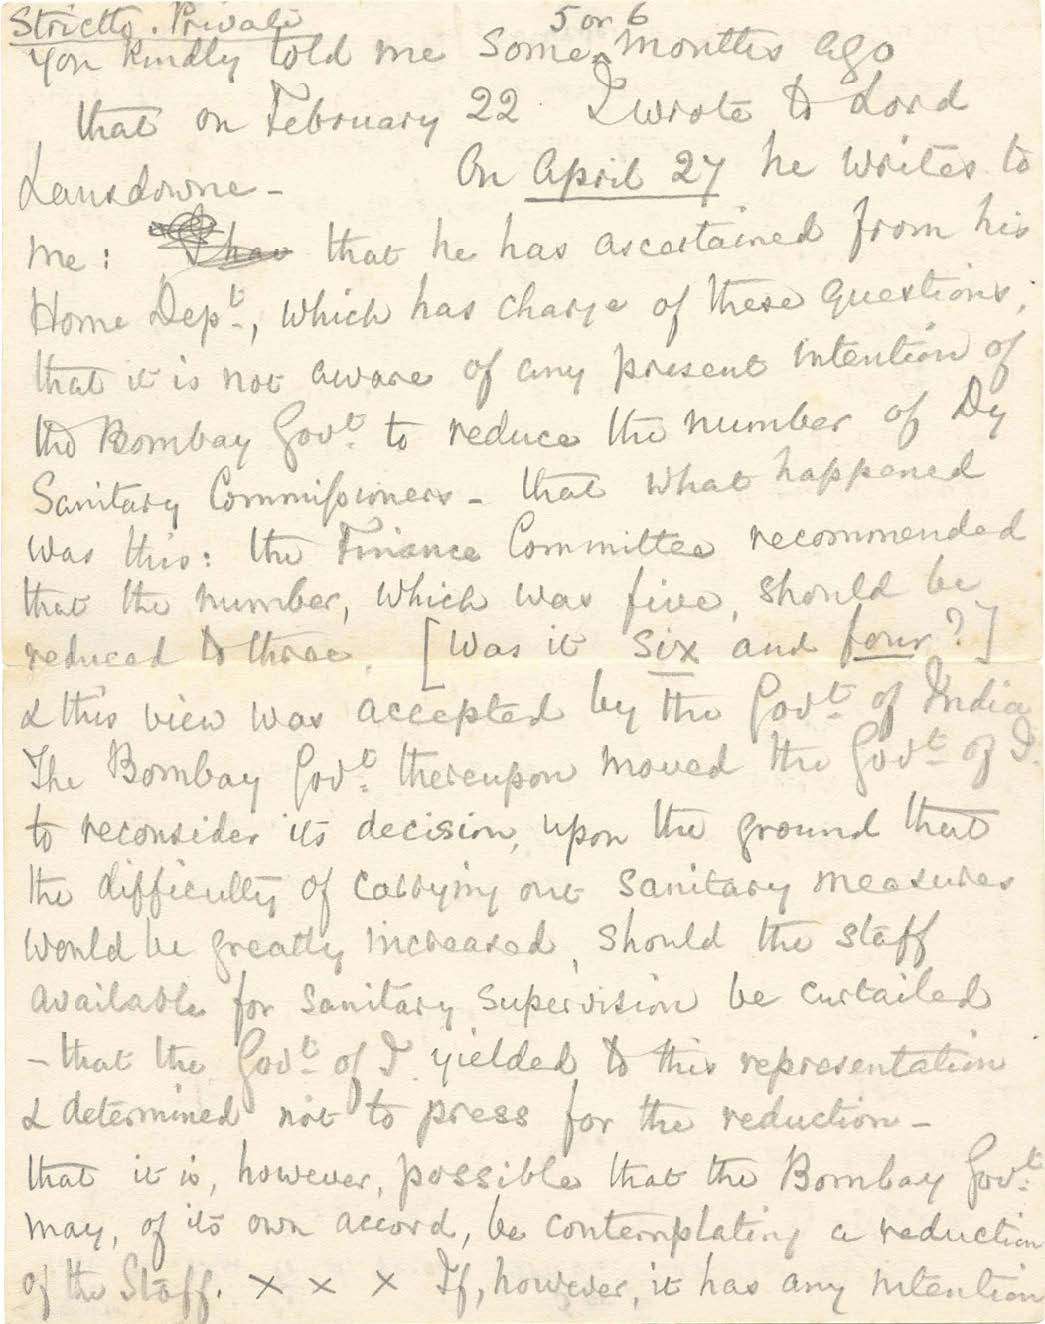 Strictly Private
5 or 6
You kindly told me some months ago
that on February 22 I wrote to Lord
Lansdowne - On April 27 he writes to
me: that he has ascertained from his
Home Dept., which has charge of these questions,
that it is not aware of any present intention of
the Bombay Govt. to reduce the number of Dy
Sanitary Commissioners - that what happened
was this: the Finance Committee recommended
that the number, which was five, should be
reduced to three. [Was it six and four?]
& this view was accepted by the Govt. of India
The Bombay Govt. thereupon moved the Govt. of I.
to reconsider its decision, upon the ground that
the difficulty of carrying out sanitary measures
would be greatly increased, should the staff
available for sanitary supervision be curtailed
- that the Govt. of I. yielded to this representation
& determined not to press for the reduction -
that it is, however, possible that the Bombay Govt.
may, of its own accord, be contemplating a reduction
of the Staff. x x x If, however, it has any intention